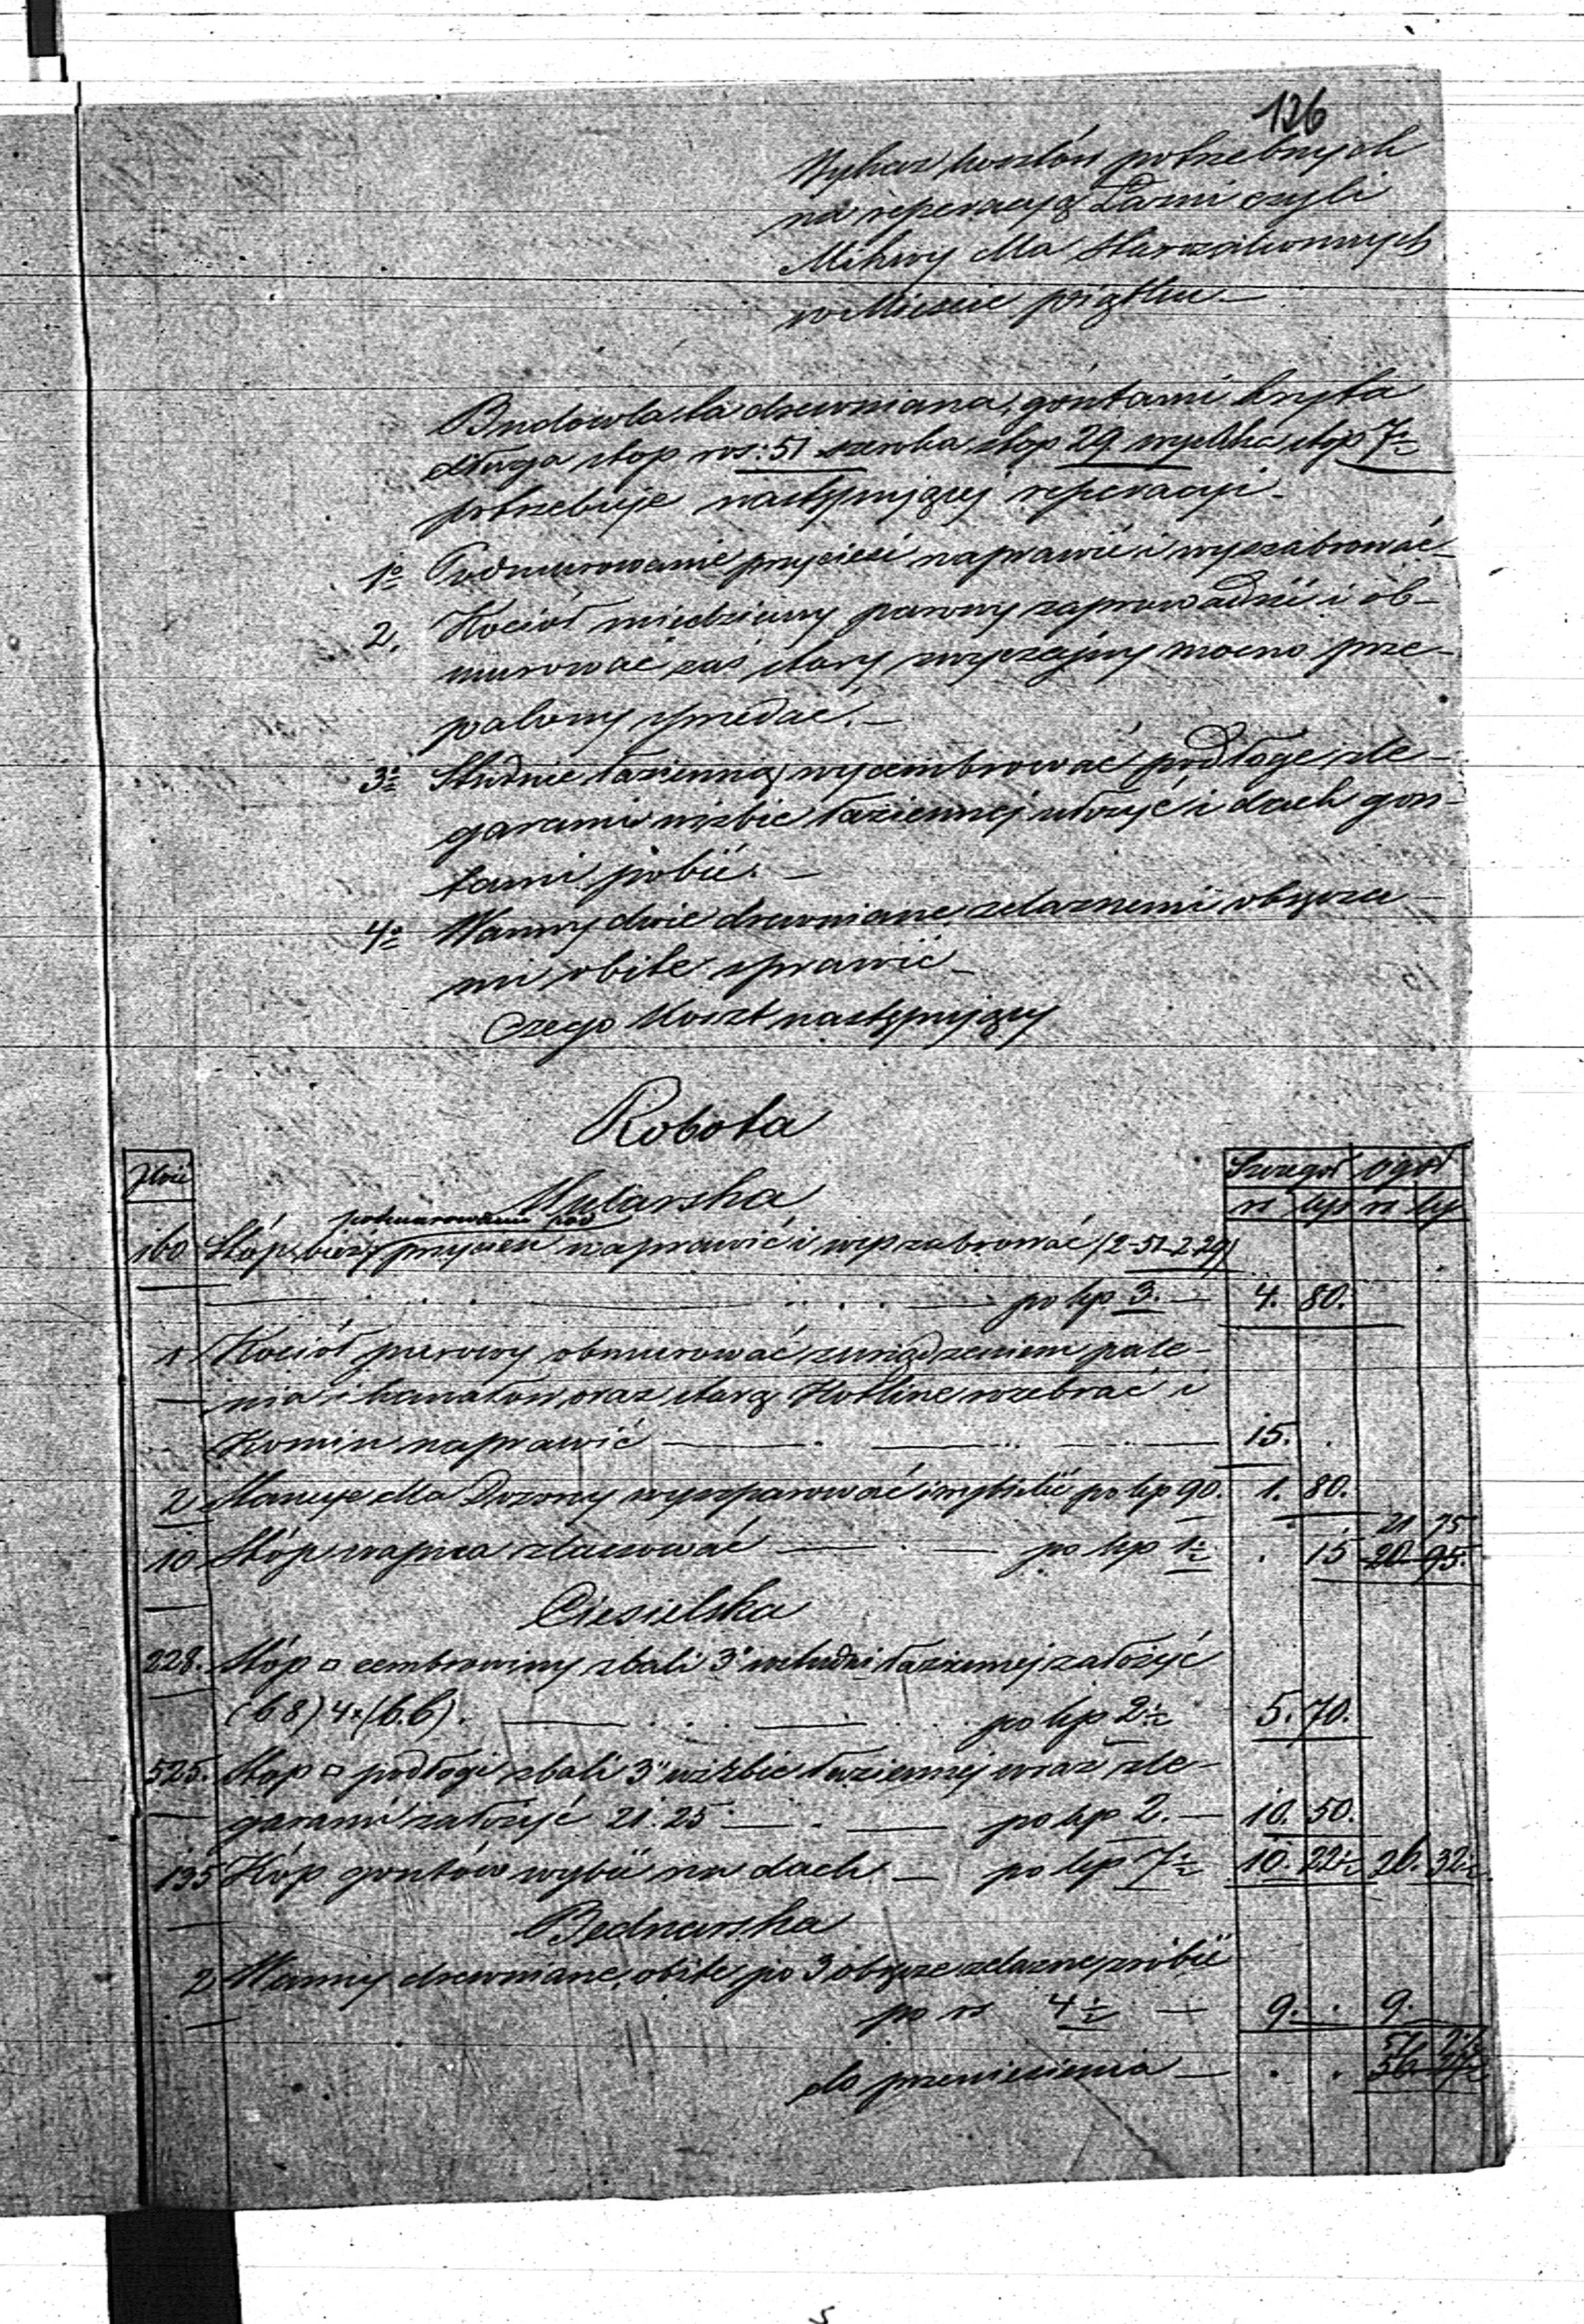 126
Wykaz kosztów potrzebnych
na reperacyą Łazni czyli
Mikwy dla Starozakonnych
w Mieście Piątku —
Budowla ta drewniana, gontami kryta
długa stop ros: 51 szeroka stop 29 wysoka stop 7½
potrzebuje następującej reperacyi.
1o Podmurowanie przyciesi naprawić i wyszabrować
2, Kocioł miedziany parowy zaprowadzić i ob-
murować zaś stary zwyczajny mocno prze-
palony sprzedać. —
3o Studnie łazienną wycembrować podłogę z le-
garami w izbie łaziennej ułożyć i dach gon-
tami pobić. —
4o Wanny dwie drewniane żelaznemi obręcza-
mi obite sprawić —
Czego Koszt następujący
Robota
Ilość Szczegół Ogół
Mularska rs kp rs kp
podmurowania pod
160 Stóp bieżą przycieś naprawić i wyszabrować (2-51-2.29)
po kp 3. — 4. 80.
1 Kocioł parowy obmurować z urządzeniem pale-
nia i kanałów oraz starą Kotlinę rozebrać i
Komin naprawić — 15.
2 po kp 90. 1. 80.
21 75
10 Stóp wapna zlasować — po kp 1½ . 15 20 95.
Ciesielska
228. Stóp □ cembrowiny z bali 3" w studni łaziennej założyć
(6 8) 4 × (6.6). po kp 2½ 5. 70.
525. Stóp □ podłogi z bali 3" w izbie łaziennej wraz z le-
garami założyć 21. 25 — po kp 2. — 10. 50.
135 Kóp gontów wybić na dach — po kp 7½ 10. 22½ 26. 32½
Bednarska
2 Wanny drewniane, obite po 3 obręcze żelazne zrobić
po rs 4½ — 9. . 9.
do przeniesienia —